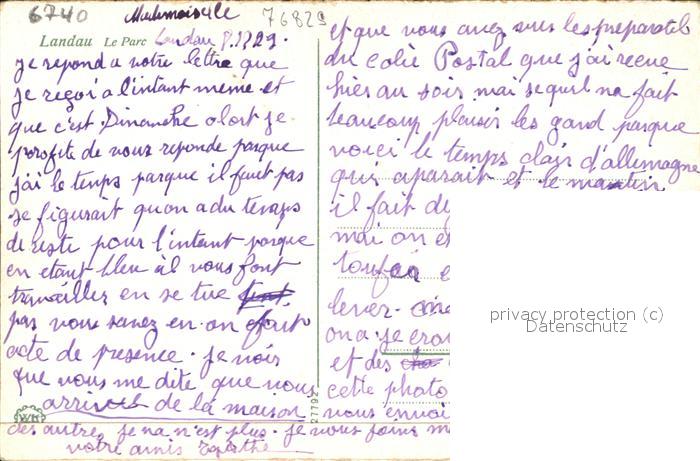 6740
Mademoiselle
76829
Landau Le Parc
Landau 8.12.29.
je repond a votre lettre que
je reçoi a l'intant meme et
que c'est Dimanche alort je
porofite de vous reponde parque
j'ai le temps parque il feut pas
se figurait quon a du temps
de reste pour l'intant parque
en etant bleu il vous font
travailler en se tue
pas vous savez en on fait
acte de presence. je vois
que vous me dite que vous
arrivet de la maison
des autres je na n'est plus. je vous foins m
votre amis
WH
27792
et que vous avez vus les preparatifs
du colie Postal que j'ai recue
hier au soir mai sequil ma fait
beaucoup plaisir les gand parque
voici le temps clair d'allemagne
qui aparait et le mantin
il fait d
mai on es
toufaa e
lever.
on a. je croi
et des
cette photo
vous envoi
privacy protection (c)
Datenschutz